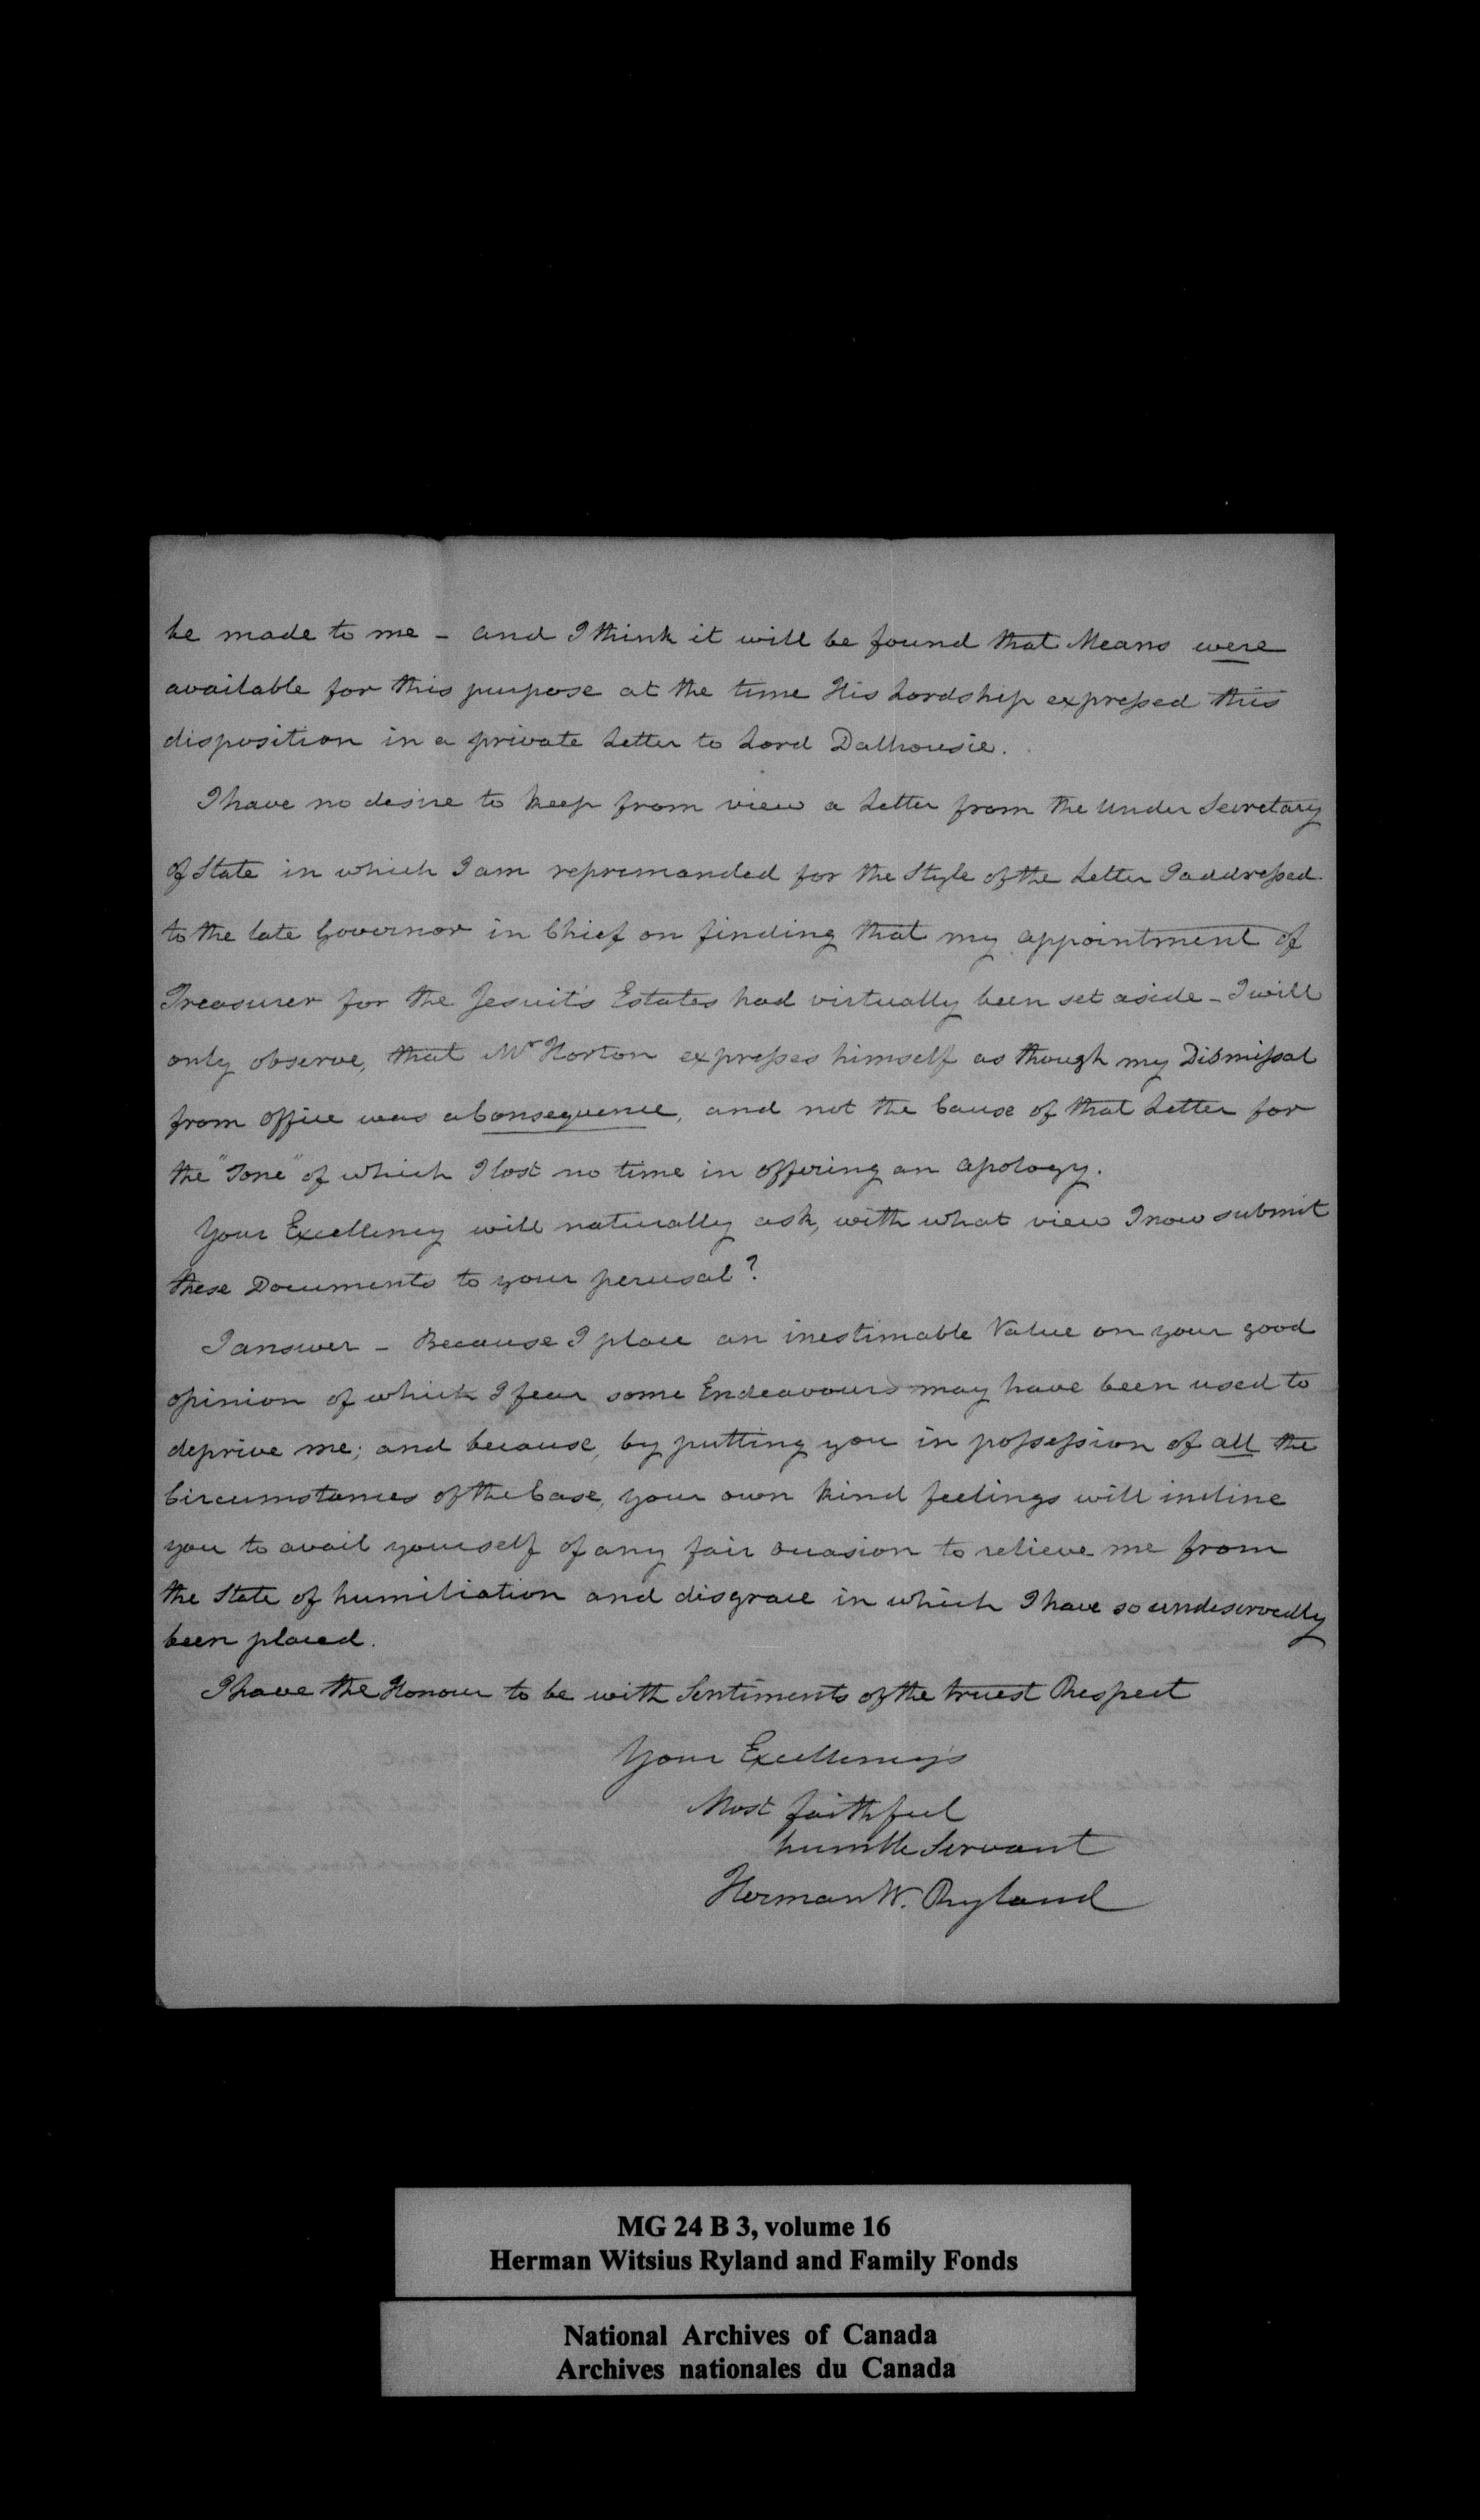 be made to me - and I think it will be found that Means were
available for this purpose at the time His Lordship expressed this
disposition in a private Letter to Lord Dalhousie.
I have no desire to keep from view a Letter from the Under Secretary
of State in which I am reprimanded for the Style of the Letter I addressed
to the late Governor in Chief on finding that my appointment of
Treasurer for the Jesuit's Estates had virtually been set aside - I will
only observe, that Mr Horton expresses himself as though my Dismissal
from office was a Consequence, and not the Cause of that Letter for
the "Tone" of which I lost no time in offering an apology.
Your Excellency will naturally ask, with what view I now submit
these Documents to your perusal?
I answer - Because I place an inestimable Value on your good
opinion of which I fear some Endeavours may have been used to
deprive me; and because, by putting you in possession of all the
Circumstances of the Case, your own kind feelings will incline
you to avail yourself of any fair occasion to relieve me from
the State of humiliation and disgrace in which I have so undeservedly
been placed.
I have the Honour to be with Sentiments of the truest Respect
Your Excellency's
Most faithful
humble Servant
Herman W. Ryland
MG 24 B 3, volume 16
Herman Witsius Ryland and Family Fonds
National Archives of Canada
Archives nationales du Canada